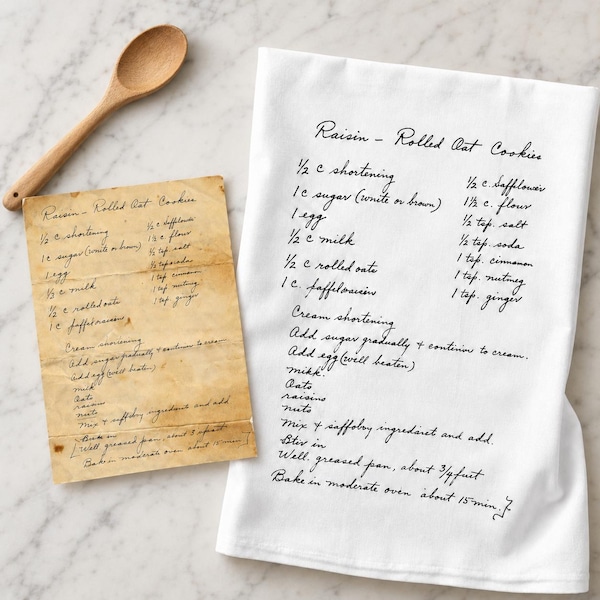 Raisin – Rolled Oat Cookies
½ c shortening
1 c sugar (white or brown)
1 egg
½ c milk
½ c rolled oats
1 c.
½ c Safflower
1½ c. flour
½ tsp salt
1 tsp. cinnamon
1 tsp. nutmeg
1 tsp. ginger
Cream shortening
Add sugar gradually & continue to cream
Add egg (well beaten)
milk
Oats
raisins
nuts
Mix & ingredient and add
in
[Well greased pan, about
Bake in moderate oven about 15 min.]
Raisin – Rolled Oat Cookies
½ c shortening
1 c sugar (white or brown)
1 egg
½ c milk
½ c rolled oats
1 c.
½ c. Safflower
1½ c. flour
½ tsp. salt
½ tsp. soda
1 tsp. cinnamon
1 tsp. nutmeg
1 tsp. ginger
Cream shortening
Add sugar gradually & to cream.
Add egg (well beaten)
milk.
Oats
raisins
nuts
Mix & and add.
in
Well. greased pan, about 3/4
Bake in moderate oven about 15 min.}.